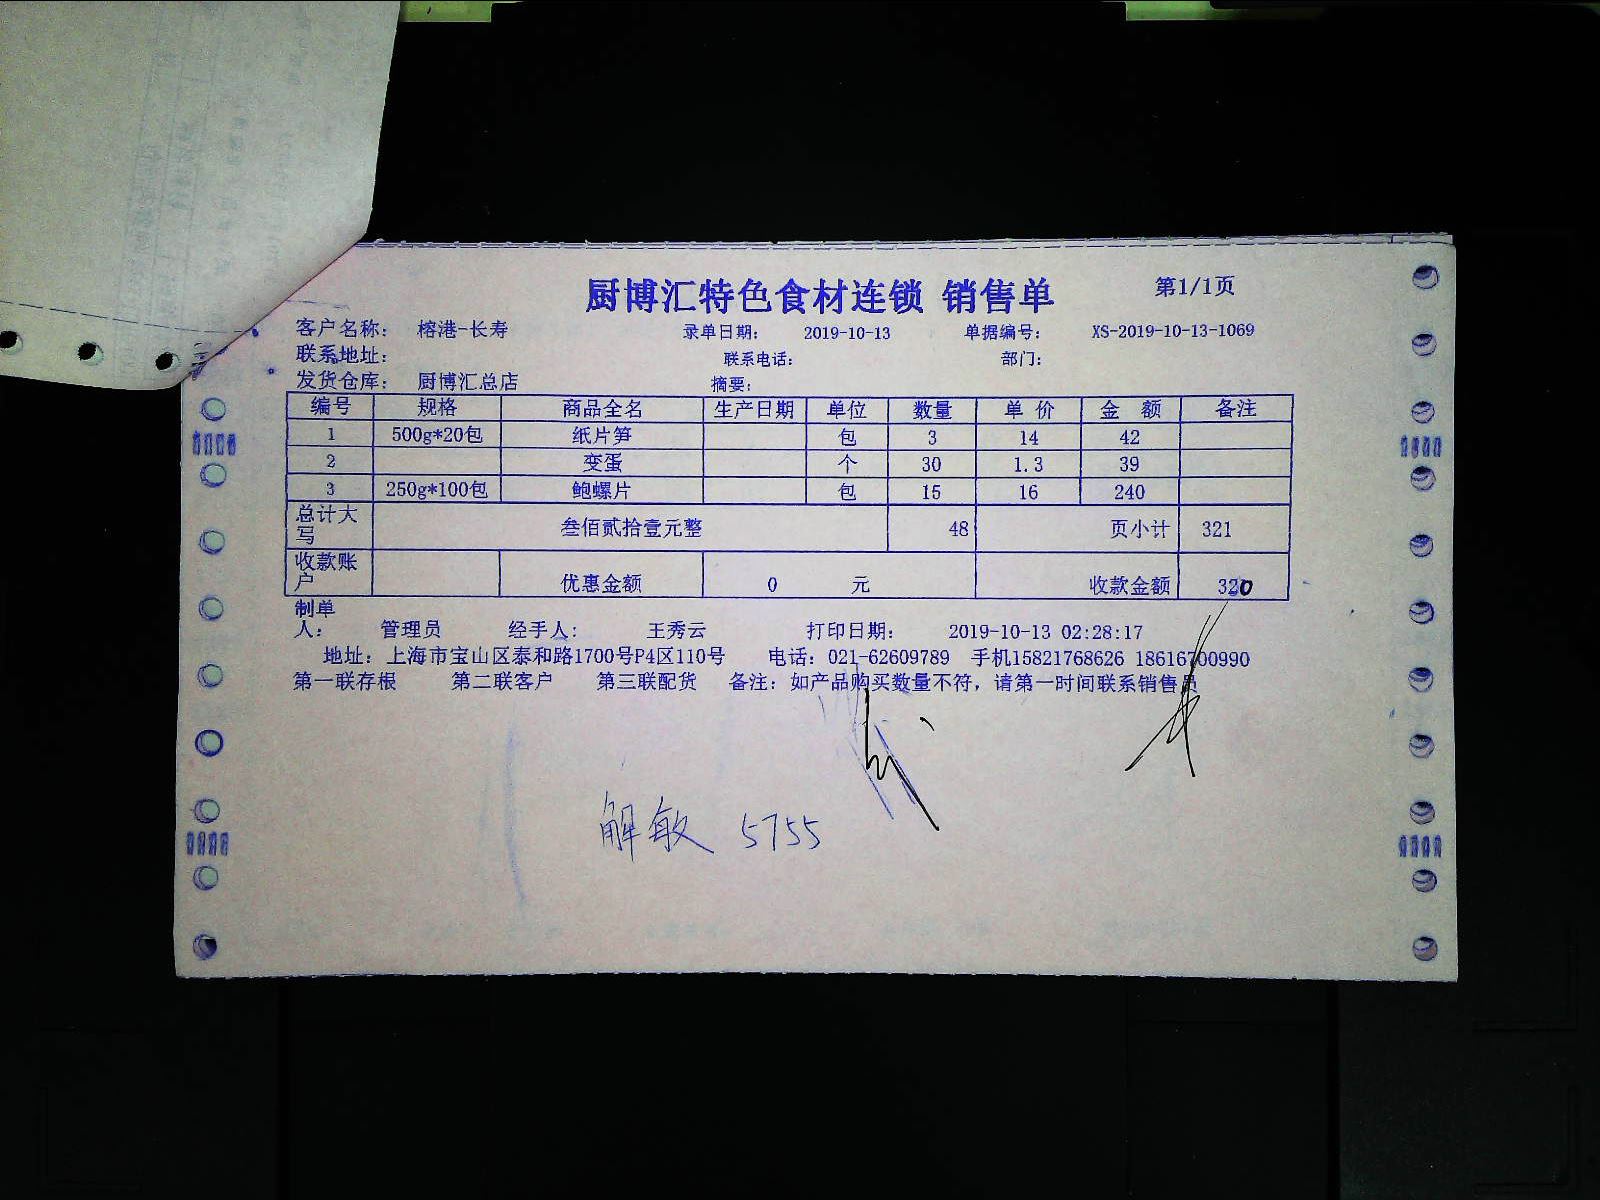 厨博汇特色食材连锁 销售单 第1/1页
客户名称： 榕港-长寿 录单日期： 2019-10-13 单据编号： XS-2019-10-13-1069
联系地址： 联系电话： 部门：
发货仓库： 厨博汇总店 摘要：
编号 规格 商品全名 生产日期 单位 数量 单 价 金 额 备注
1 500g*20包 纸片笋 包 3 14 42
2 变蛋 个 30 1.3 39
3 250g*100包 鲍螺片 包 15 16 240
总计大写 叁佰贰拾壹元整 48 页小计 321
收款账户 优惠金额 0 元 收款金额 320
制单人： 管理员 经手人： 王秀云 打印日期： 2019-10-13 02:28:17
地址：上海市宝山区泰和路1700号P4区110号 电话：021-62609789 手机15821768626 18616700990
第一联存根 第二联客户 第三联配货 备注：如产品购买数量不符，请第一时间联系销售员
解敏 5755